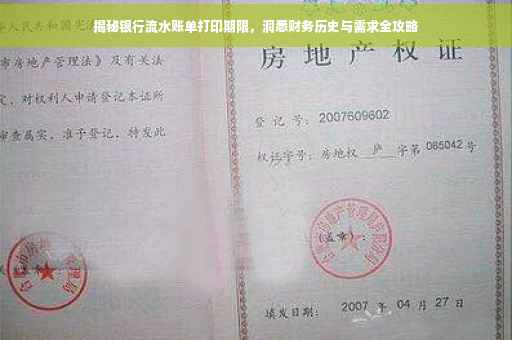 揭秘银行流水账单打印期限，洞悉财务历史与需求全攻略
人民共和国宪
市房地产管理法》及有关法
定，对权利人申请登记本证所
审查属实，准予登记，特发此
房地产权证
登记号：2007609602
权证字号：房地权 庐 字第 085042 号
(盖章)：
填发日期： 2007 年 04 月 27 日